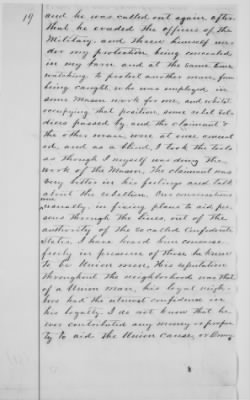 19
and he was called out again, after
that he evaded the officers of the
Military, and threw himself un-
der my protection being concealed
in my barn and at the same time
watching to protect another man, from
being caught, who was employed in
some Mason work for me, and whilst
occupying that position, some rebel sol-
diers passed by, and the claimant &
the other man were at once conceal
ed, and as a blind, I took the tools
as though I myself was doing the
work of the Mason. The claimant was
very bitter in his feelings and talk
about the rebellion. Our conversations
were
usually, in fixing plans to aid per-
sons through the lines, out of the
authority of the so called Confederate
States, I have heard him converse
freely in presence of those he knew
to be Union men, His reputation
throughout the neighborhood was that
of a Union man, his loyal neigh-
bors had the utmost confidence in
his loyalty I do not know that he
ever contributed any money or proper
ty to aid the Union cause, or Army